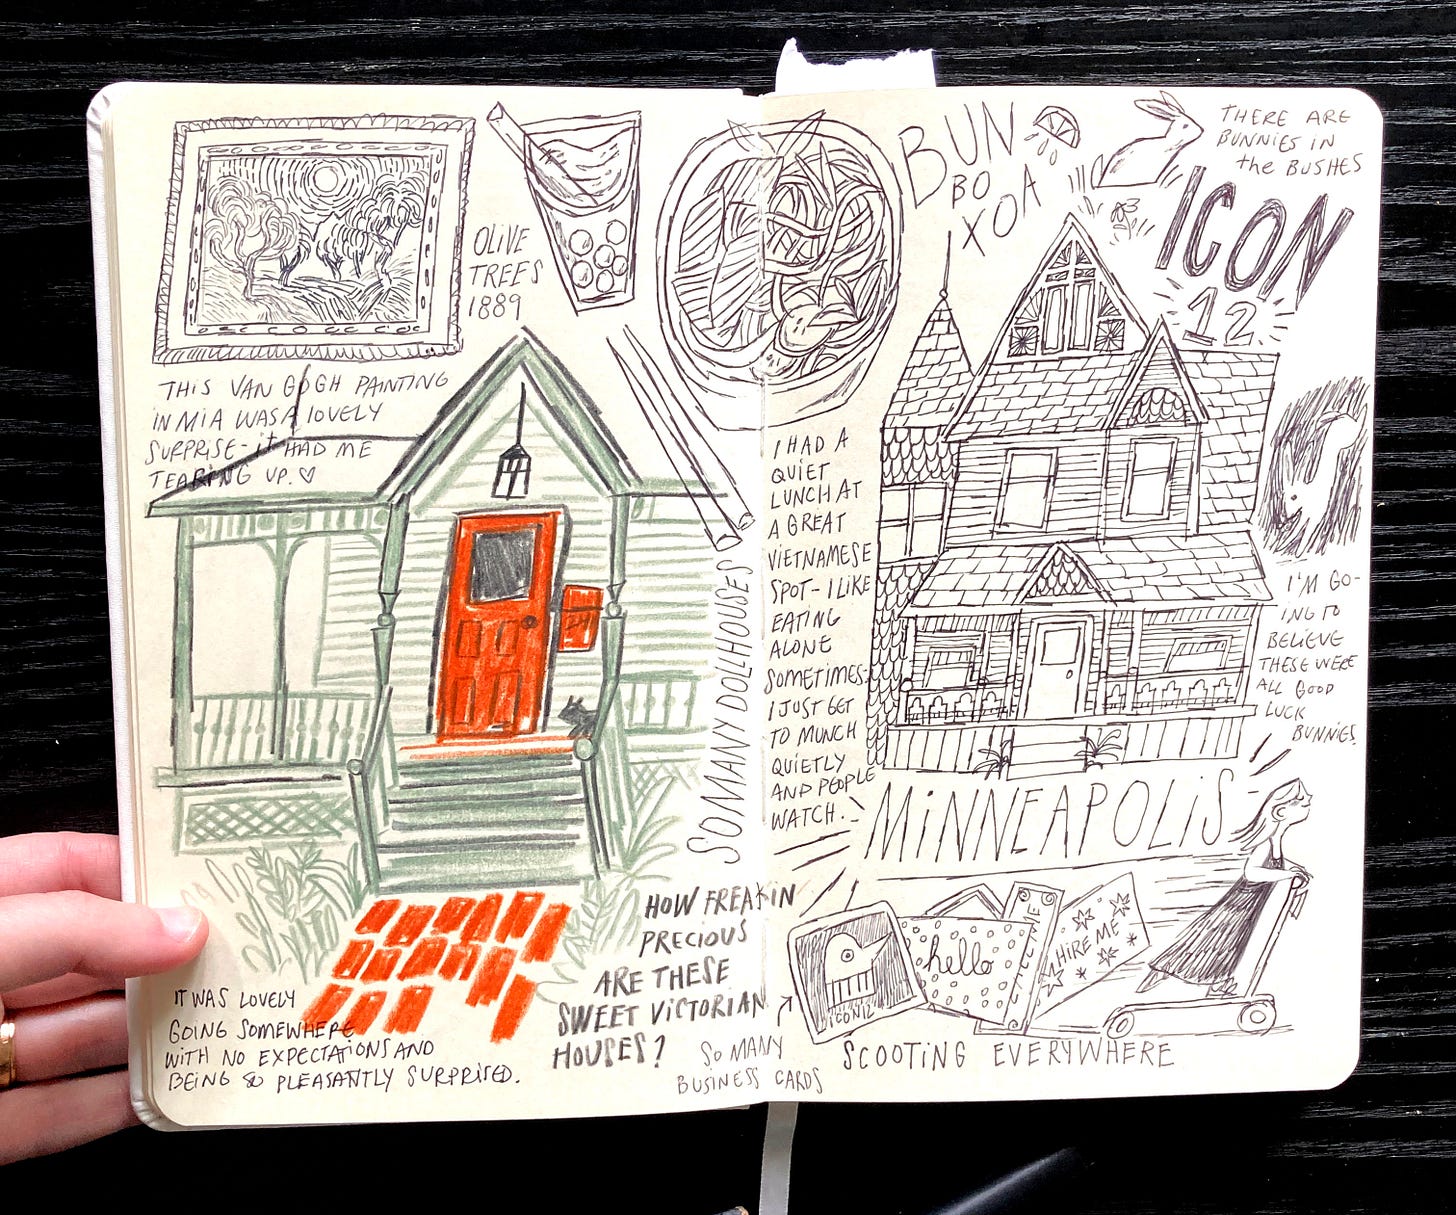 OLIVE
TREES
1889
THIS VAN GOGH PAINTING
IN MIA WAS A LOVELY
SURPRISE - it HAD ME
TEARING UP. ♡
SO MANY DOLLHOUSES
IT WAS LOVELY
GOING SOMEWHERE
WITH NO EXPECTATIONS AND
BEING SO PLEASANTLY SURPRISED.
HOW FREAKIN
PRECIOUS
ARE THESE
SWEET VICTORIAN
HOUSES?
SO MANY
BUSINESS CARDS
BUN
BO
XOA
THERE ARE
BUNNIES IN
the BUSHES
ICON
12.
I HAD A
QUIET
LUNCH AT
A GREAT
VIETNAMESE
SPOT - I LIKE
EATING
ALONE
SOMETIMES-
I JUST GET
TO MUNCH
QUIETLY
AND PEOPLE
WATCH.
I'M GO-
ING TO
BELIEVE
THESE WERE
ALL GOOD
LUCK
BUNNIES.
MINNEAPOLIS
ICON12
hello
CALL ME
HIRE ME
SCOOTING EVERYWHERE